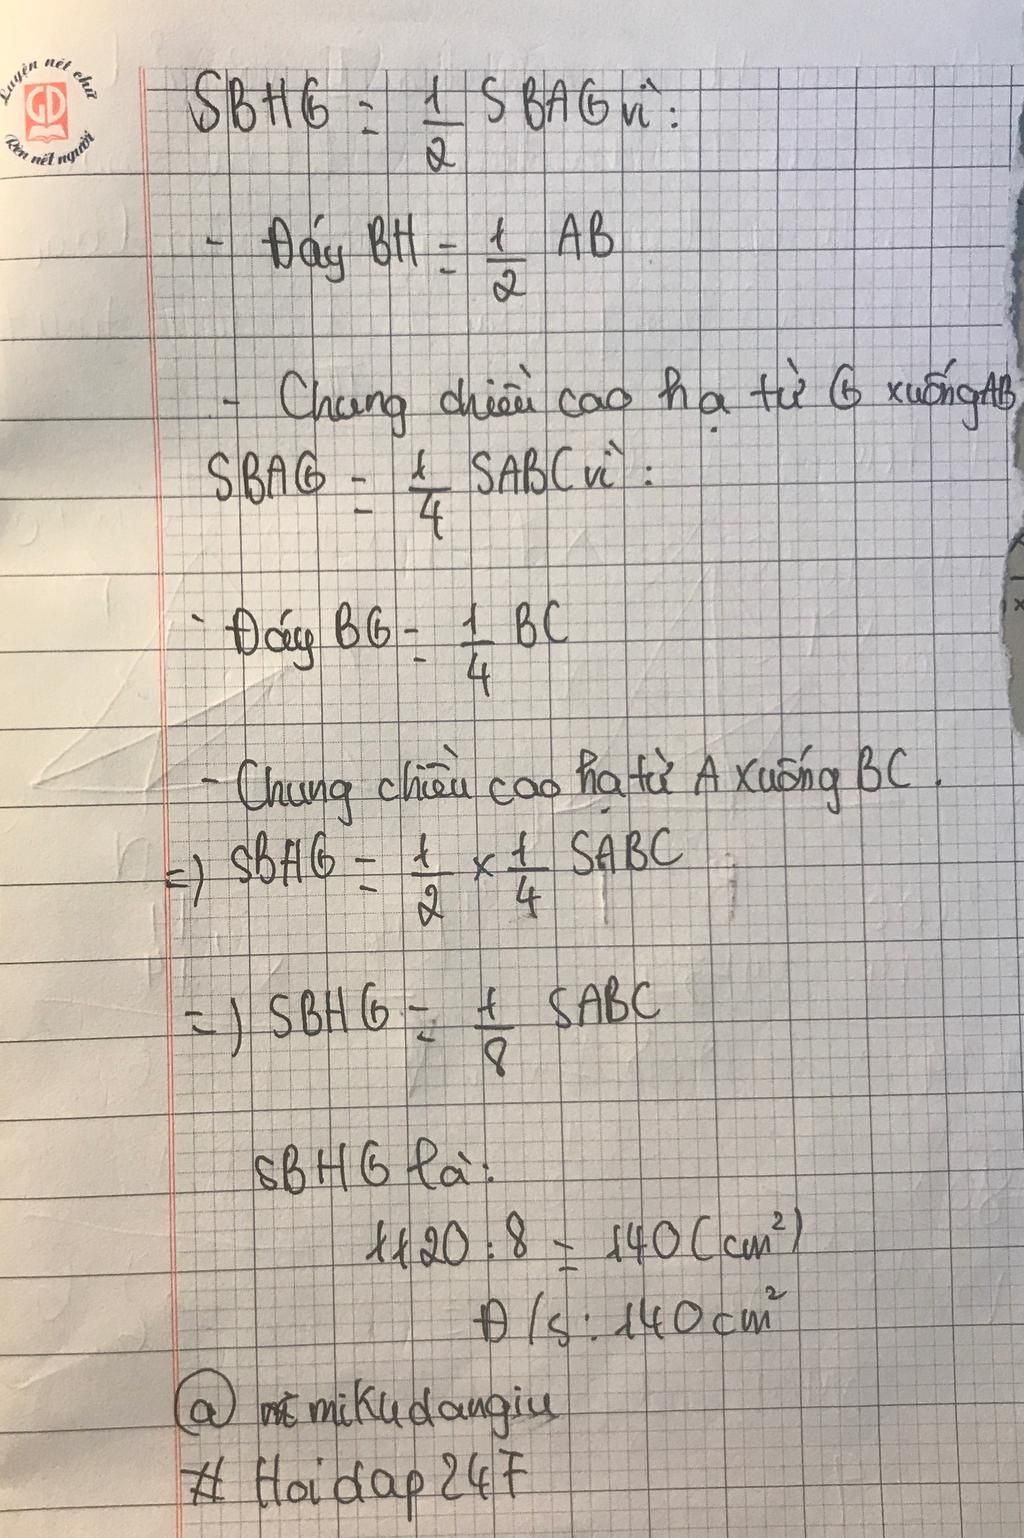 Luyện nét chữ
GD
Rèn nết người
SBHG = 1/2 SBAG vì:
- Đáy BH = 1/2 AB
- Chung chiều cao hạ từ G xuống AB
SBAG = 1/4 SABC vì:
- Đáy BG = 1/4 BC
- Chung chiều cao hạ từ A xuống BC.
=) SBHG = 1/2 x 1/4 SABC
=) SBHG = 1/8 SABC
SBHG là:
1120 : 8 = 140 (cm²)
Đ/s: 140cm²
@ mikudangiu
# Hoidap247